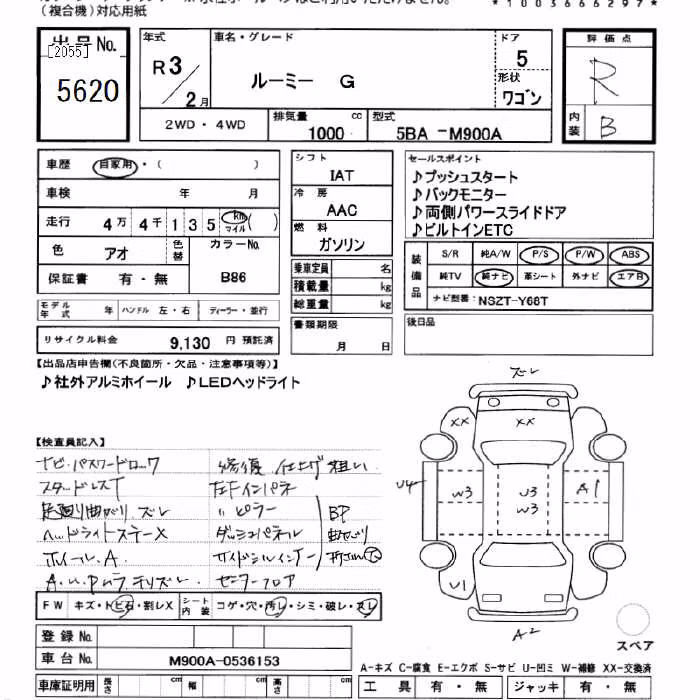 (複合機)対応用紙
*1003666297*
出品No.
[2055]
5620
年式
R3/2月
車名・グレード
ルーミー G
ドア
5
形状
ワゴン
評価点
R
内装
B
2WD・4WD
排気量
1000 cc
型式
5BA-M900A
車歴 自家用・( )
車検 年 月
走行 4万 4千 1 3 5 km マイル ( )
色 アオ
色替
カラーNo.
B86
保証書 有・無
モデル年式 年
ハンドル 左・右
ディーラー・並行
リサイクル料金 9,130 円 預託済
シフト
IAT
冷房
AAC
燃料
ガソリン
乗車定員 名
積載量 kg
総重量 kg
書類期限
月 日
セールスポイント
♪プッシュスタート
♪バックモニター
♪両側パワースライドドア
♪ビルトインETC
装備品
S/R 純A/W P/S P/W ABS
純TV 純ナビ 革シート 外ナビ エアB
ナビ型番: NSZT-Y68T
後日品
【出品店申告欄(不良箇所・欠品・注意事項等)】
♪社外アルミホイール ♪LEDヘッドライト
【検査員記入】
ナビ・パスワードロック
スタッドレスT
足廻り曲がり ズレ
ヘッドライトステーX
ホイール.A
修復 仕上げ粗い
左Fインパネ
〃 ピラー
ダッシュパネル
サイドシルインナー
センターフロア
BP
曲がり
ズレ
XX
XX
U4
W3
U3
W3
A1
U1
A2
スペア
FW キズ・トビ石・割レX
シート内装 コゲ・穴・汚レ・シミ・破レ・スレ
登録No.
車台No. M900A-0536153
車庫証明用 長さ cm 幅 cm 高さ cm
A-キズ C-腐食 E-エクボ S-サビ U-凹ミ W-補修 XX-交換済
工具 有・無 ジャッキ 有・無